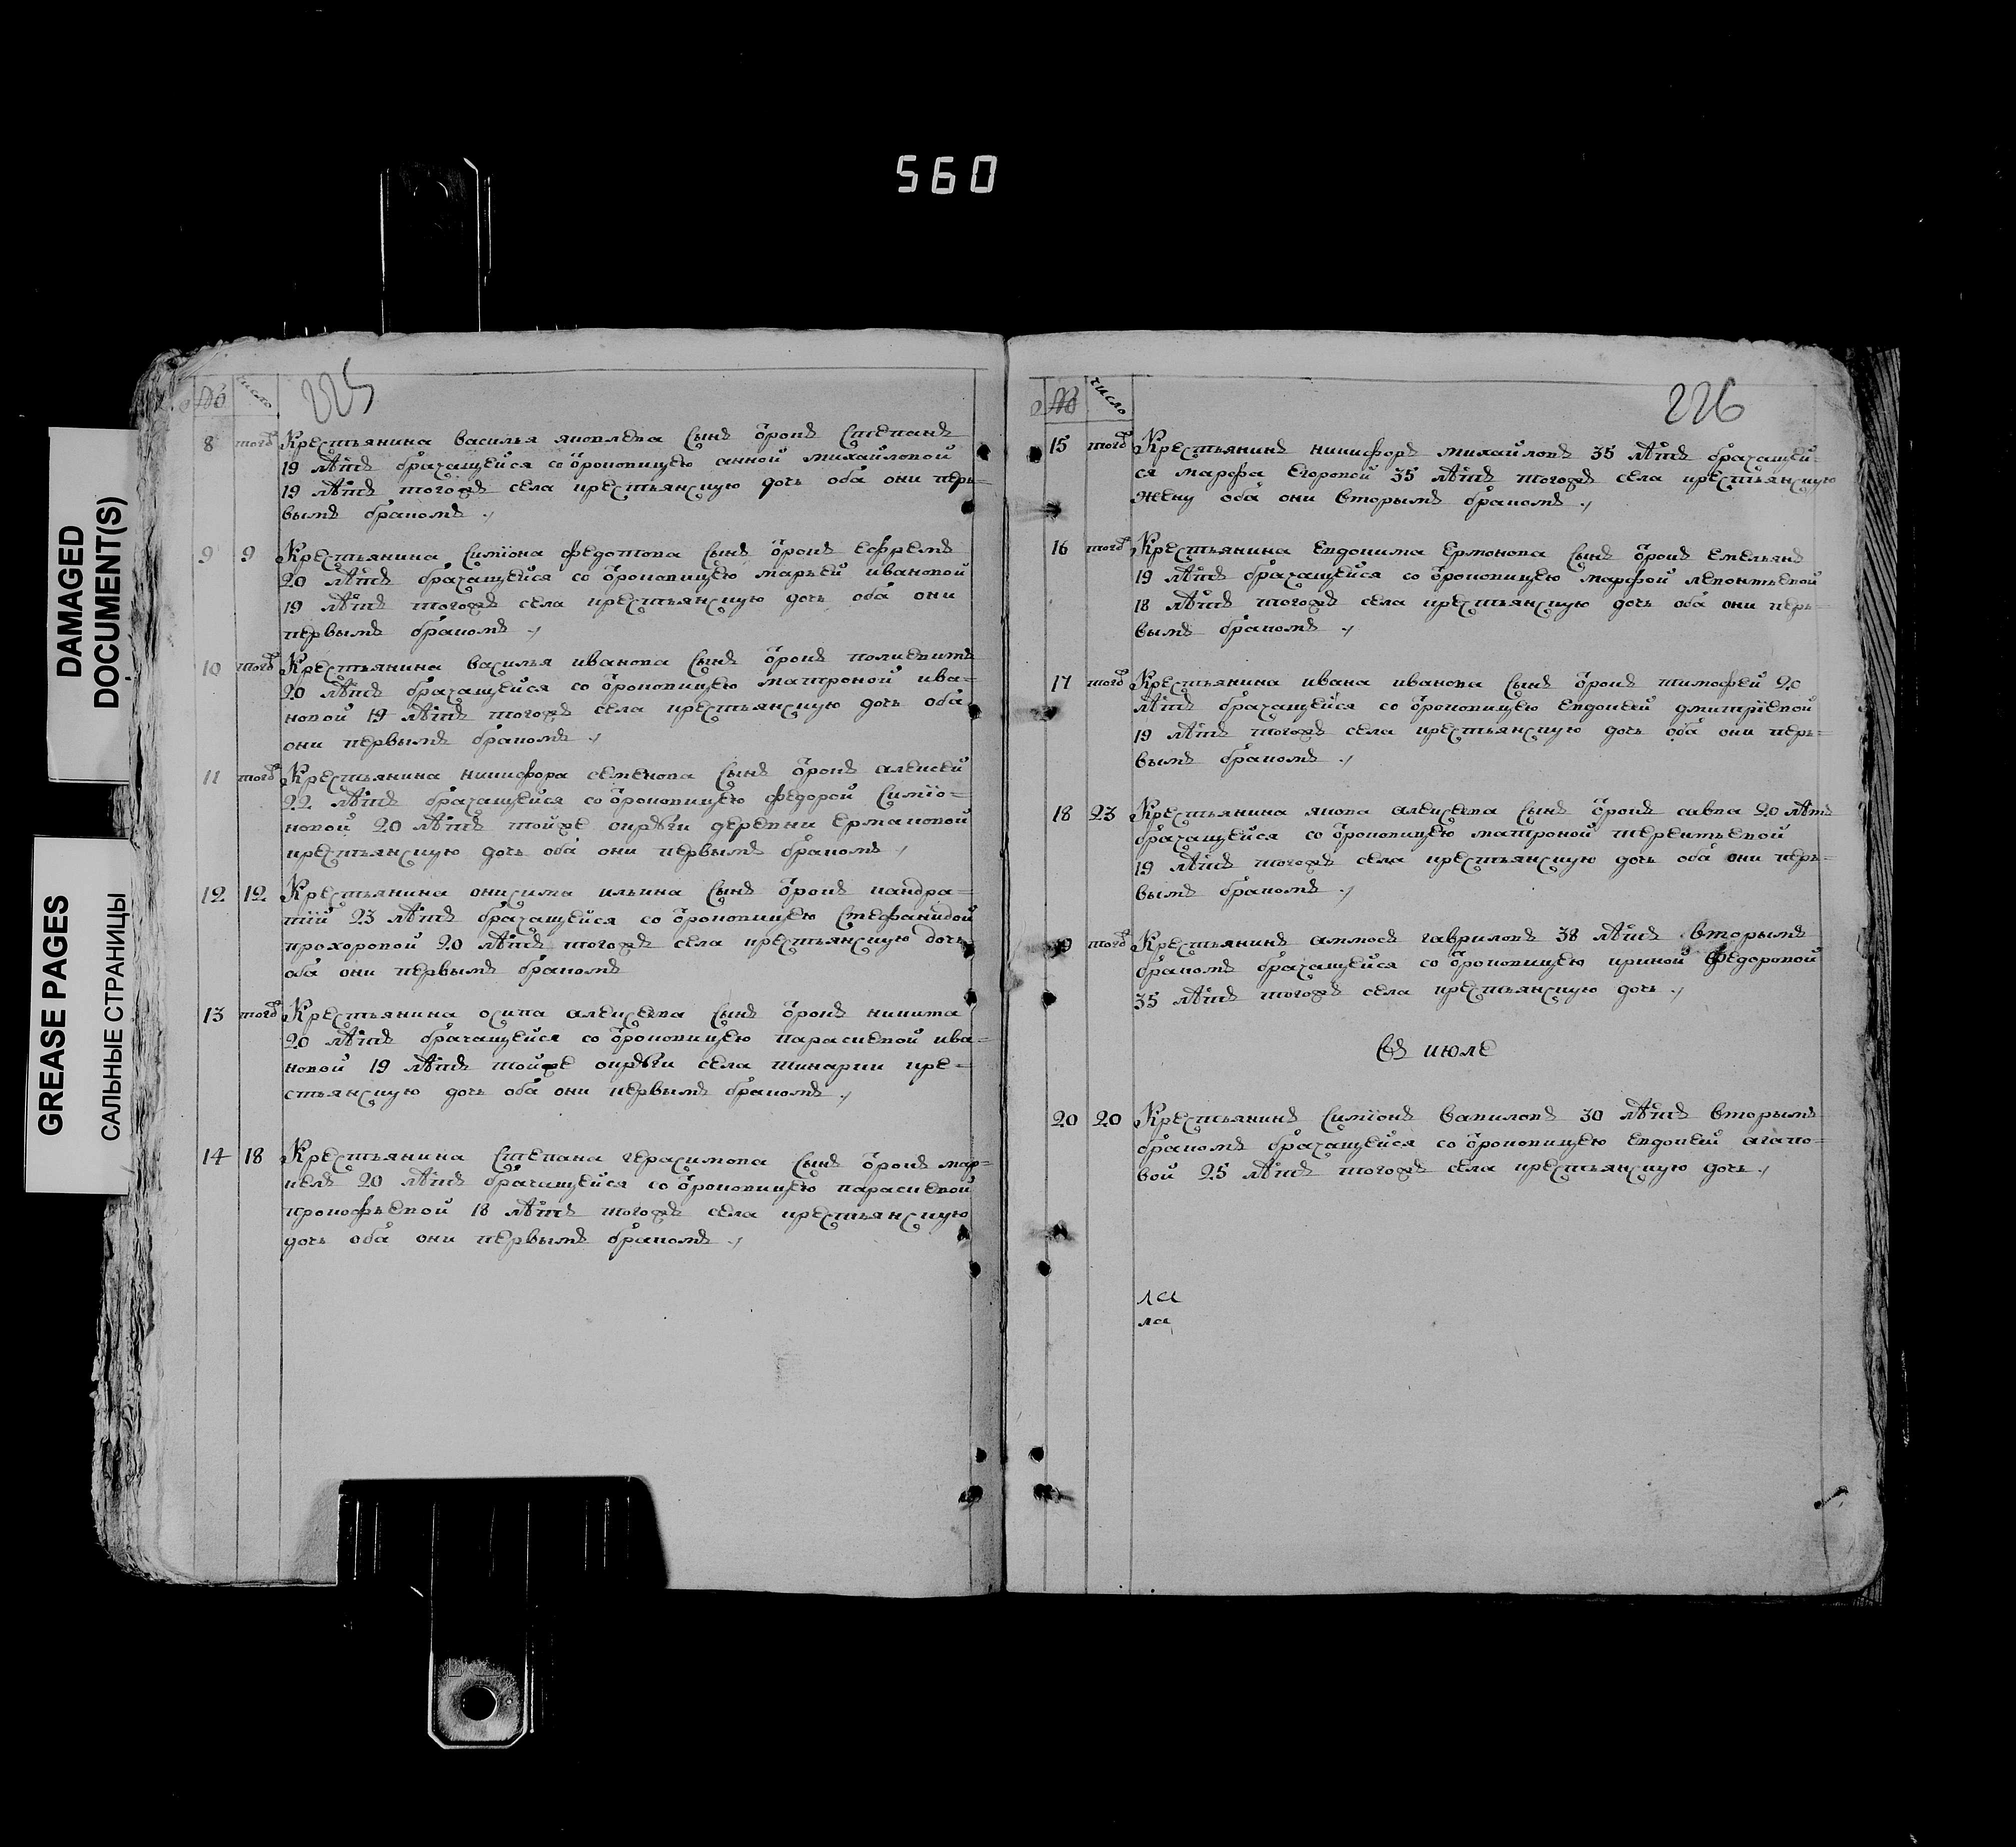 560
DAMAGED
DOCUMENT(S)
GREASE PAGES
САЛЬНЫЕ СТРАНИЦЫ
№ число 225
8 тогѡ Крестьянина василья яковлева сынъ ѻтрокъ степанъ
19 лѣтъ брачащейся со отроковицею анной михайловой
19 лѣтъ тогожъ села крестьянскую дочь оба они пер-
вымъ бракомъ
9 9 Крестьянина симїона федотова сынъ отрокъ ефремъ
20 лѣтъ брачащейся со отроковицею марьей ивановой
19 лѣтъ тогожъ села крестьянскую дочь оба они
первымъ бракомъ
10 тогѡ Крестьянина василья иванова сынъ отрокъ поликитъ
20 лѣтъ брачащейся со отроковицею матроной ива=
новой 19 лѣтъ тогожъ села крестьянскую дочь оба
они первымъ бракомъ
11 тогѡ Крестьянина никифора семенова сынъ отрокъ алексей
22 лѣтъ брачащейся со отроковицею федорой симїо=
новой 20 лѣтъ тойже округи деревни ермаковой
крестьянскую дочь оба они первымъ бракомъ
12 12 Крестьянина онисима ильина сынъ отрокъ кандра=
тїй 23 лѣтъ брачащейся со отроковицею стефанидой
прохоровой 20 лѣтъ тогожъ села крестьянскую дочь
оба они первымъ бракомъ
13 тогѡ Крестьянина осипа алексеева сынъ отрокъ никита
20 лѣтъ брачащейся со отроковицею парасковой ива=
новой 19 лѣтъ тойже округи села кре=
стьянскую дочь оба они первымъ бракомъ
14 18 Крестьянина степана герасимова сынъ отрокъ мар=
келъ 20 лѣтъ брачащейся со отроковицею парасковой
прокофьевой 18 лѣтъ тогожъ села крестьянскую
дочь оба они первымъ бракомъ
№ число 226
15 тогѡ Крестьянинъ никифоръ михайловъ 35 лѣтъ брачащей=
ся марфа егоровой 35 лѣтъ тогожъ села крестьянскую
жену оба они вторымъ бракомъ
16 тогѡ Крестьянина евдокима ермокова сынъ отрокъ емельянъ
19 лѣтъ брачащейся со отроковицею марфой леконтьевой
18 лѣтъ тогожъ села крестьянскую дочь оба они пер=
вымъ бракомъ
17 тогѡ Крестьянина ивана иванова сынъ отрокъ тимофей 20
лѣтъ брачащейся со отроковицею евдокеей дмитрїевой
19 лѣтъ тогожъ села крестьянскую дочь оба они пер=
вымъ бракомъ
18 23 Крестьянина якова алексеева сынъ отрокъ савва 20 лѣтъ
брачащейся со отроковицею матроной терентьевой
19 лѣтъ тогожъ села крестьянскую дочь оба они пер=
вымъ бракомъ
19 тогѡ Крестьянинъ аммосъ гавриловъ 38 лѣтъ вторымъ
бракомъ брачащейся со отроковицею ириной федоровой
35 лѣтъ тогожъ села крестьянскую дочь
въ июле
20 20 Крестьянинъ симїонъ вавиловъ 30 лѣтъ вторымъ
бракомъ брачащейся со отроковицею евдокеей агапо=
вой 25 лѣтъ тогожъ села крестьянскую дочь